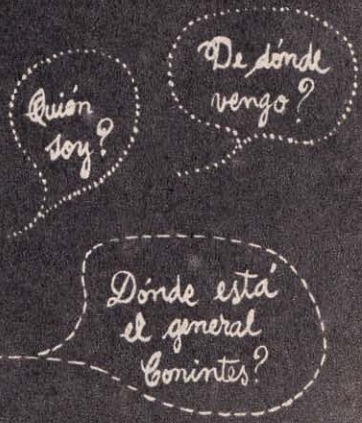 Quién
soy?
De dónde
vengo?
Dónde está
el general
Conintes?